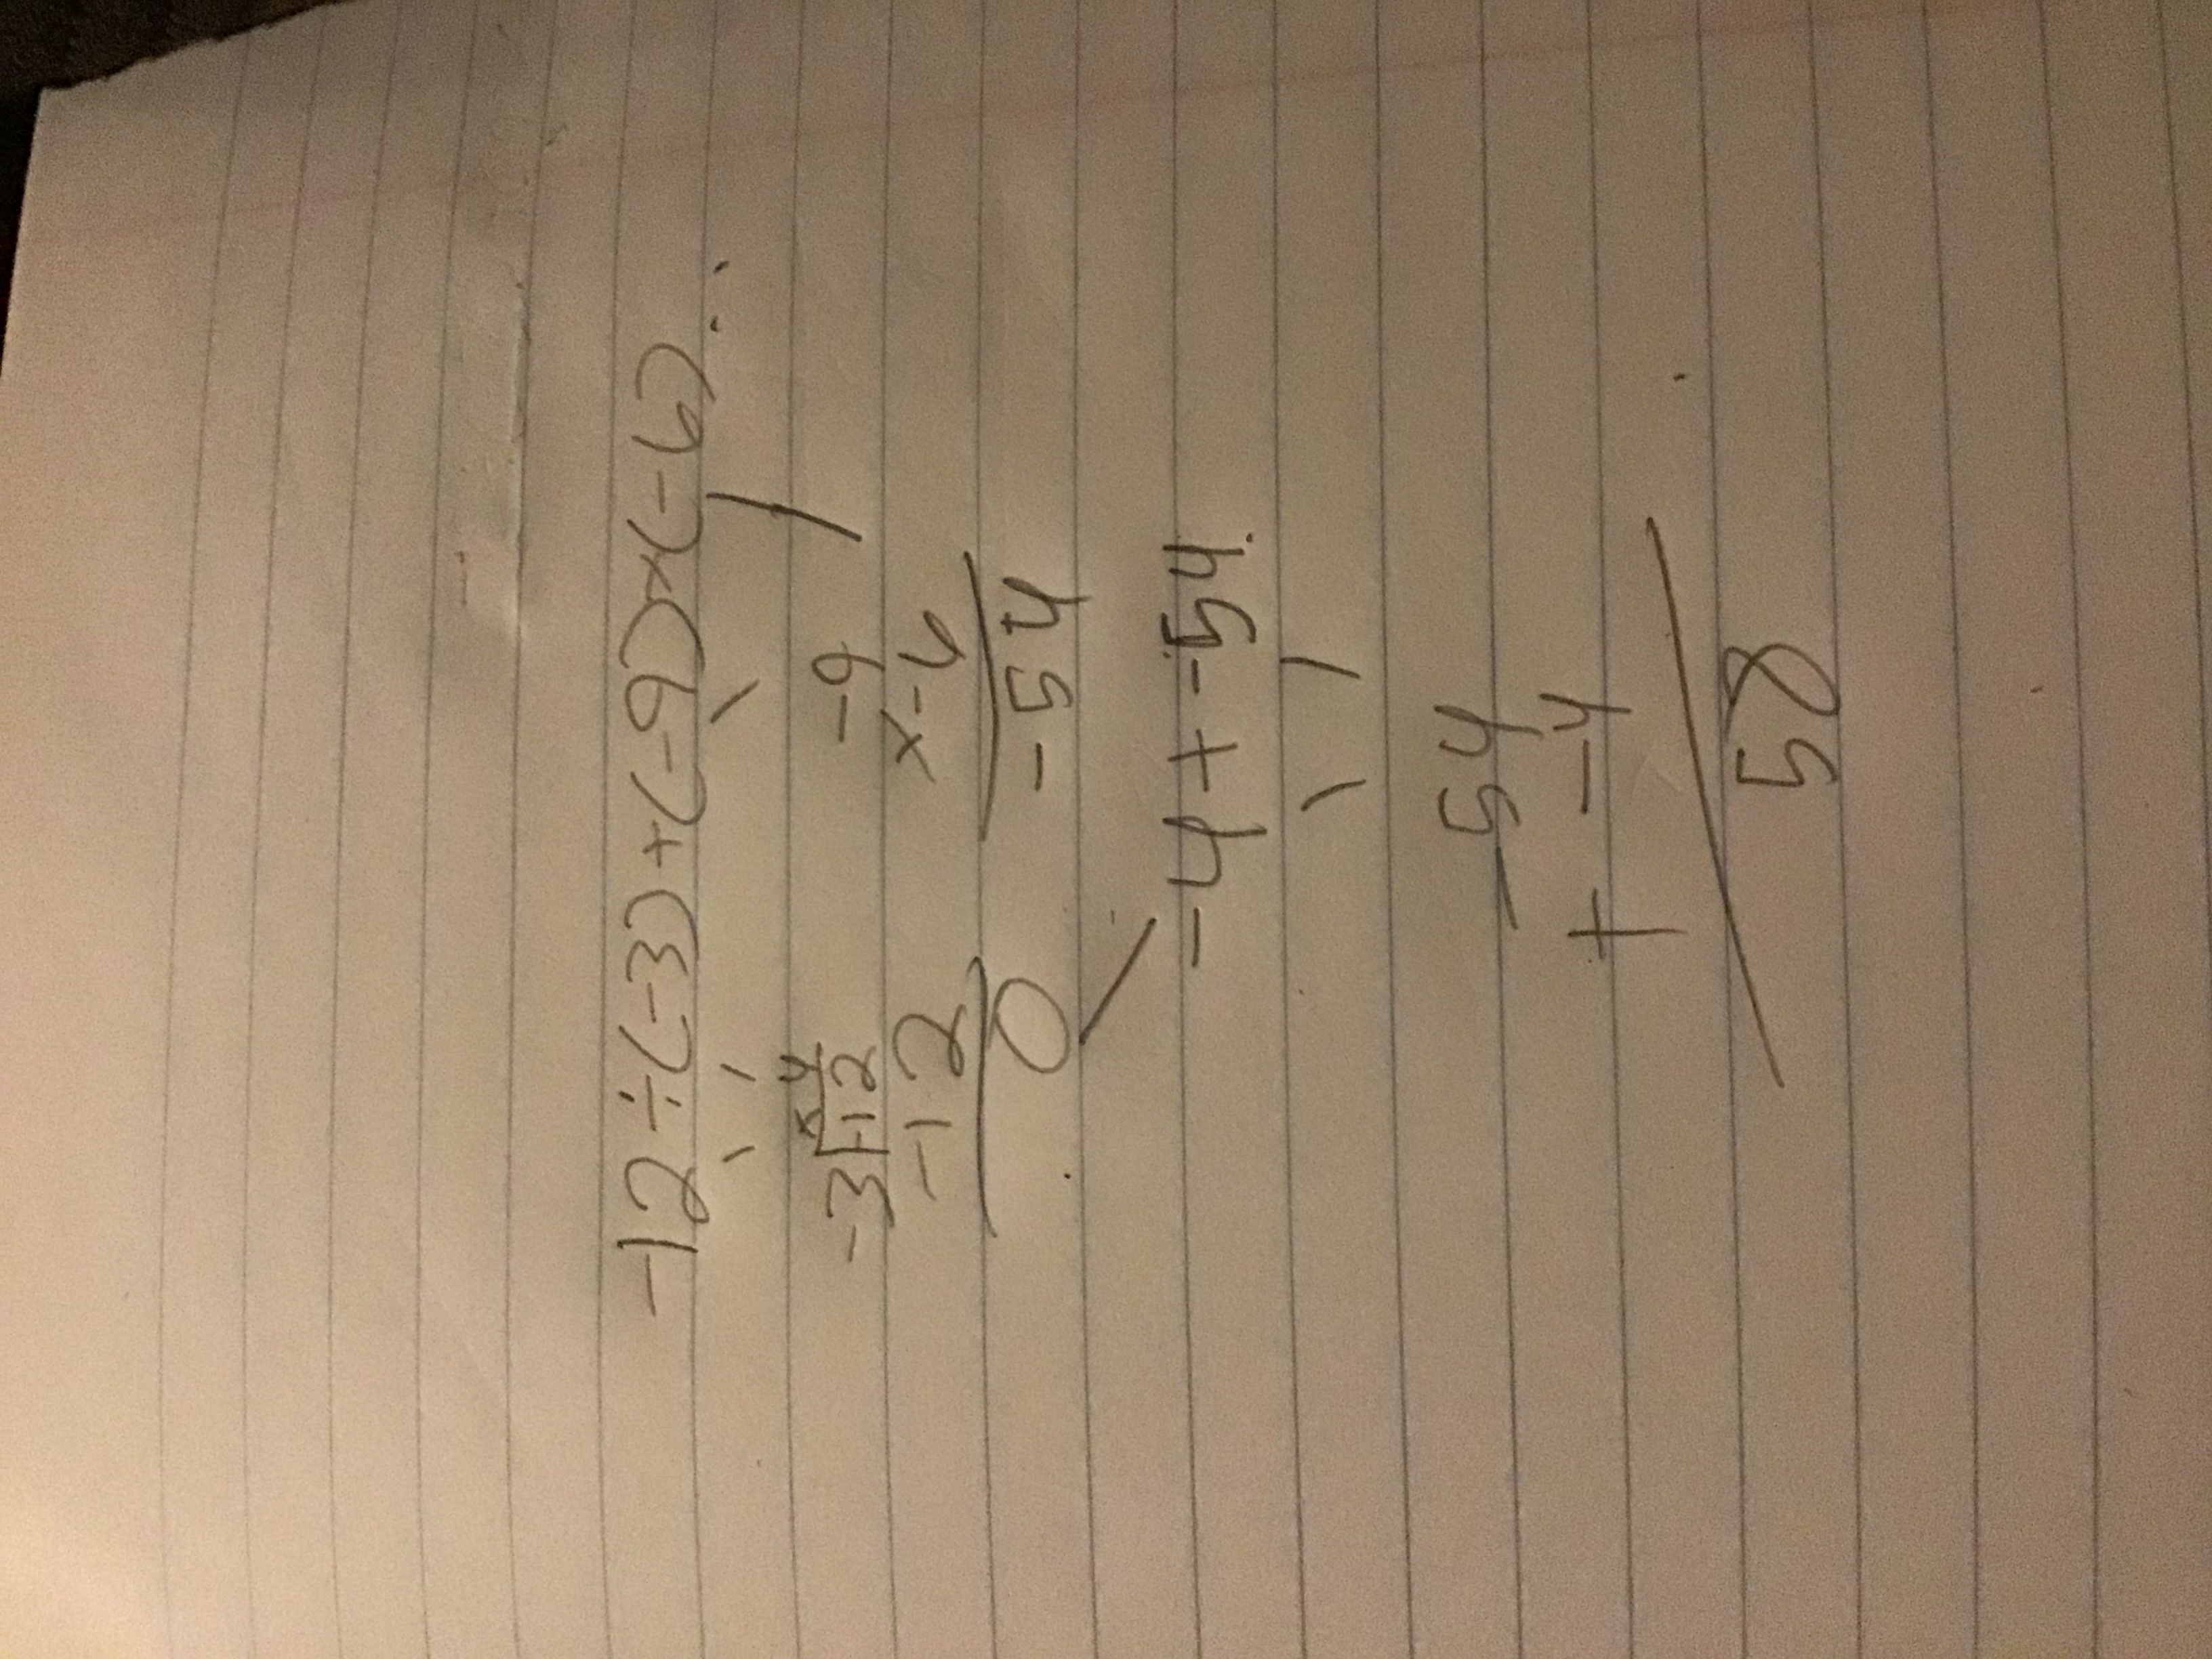 -12÷(-3)+(-9)×(-6)
-4
-3√-12
-12
0
-9
×-6
-54
-4+-54
-54
+ -4
58